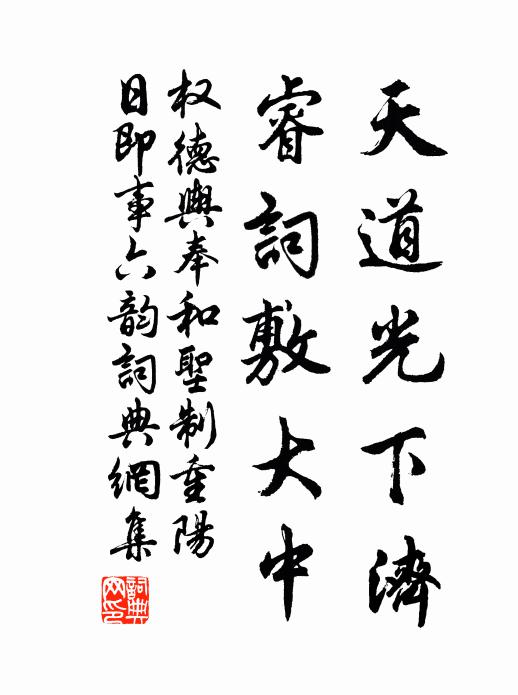 天道光下濟
睿詞敷大中
权德輿奉和聖制重陽
日即事六韵詞典網集
詞典網印